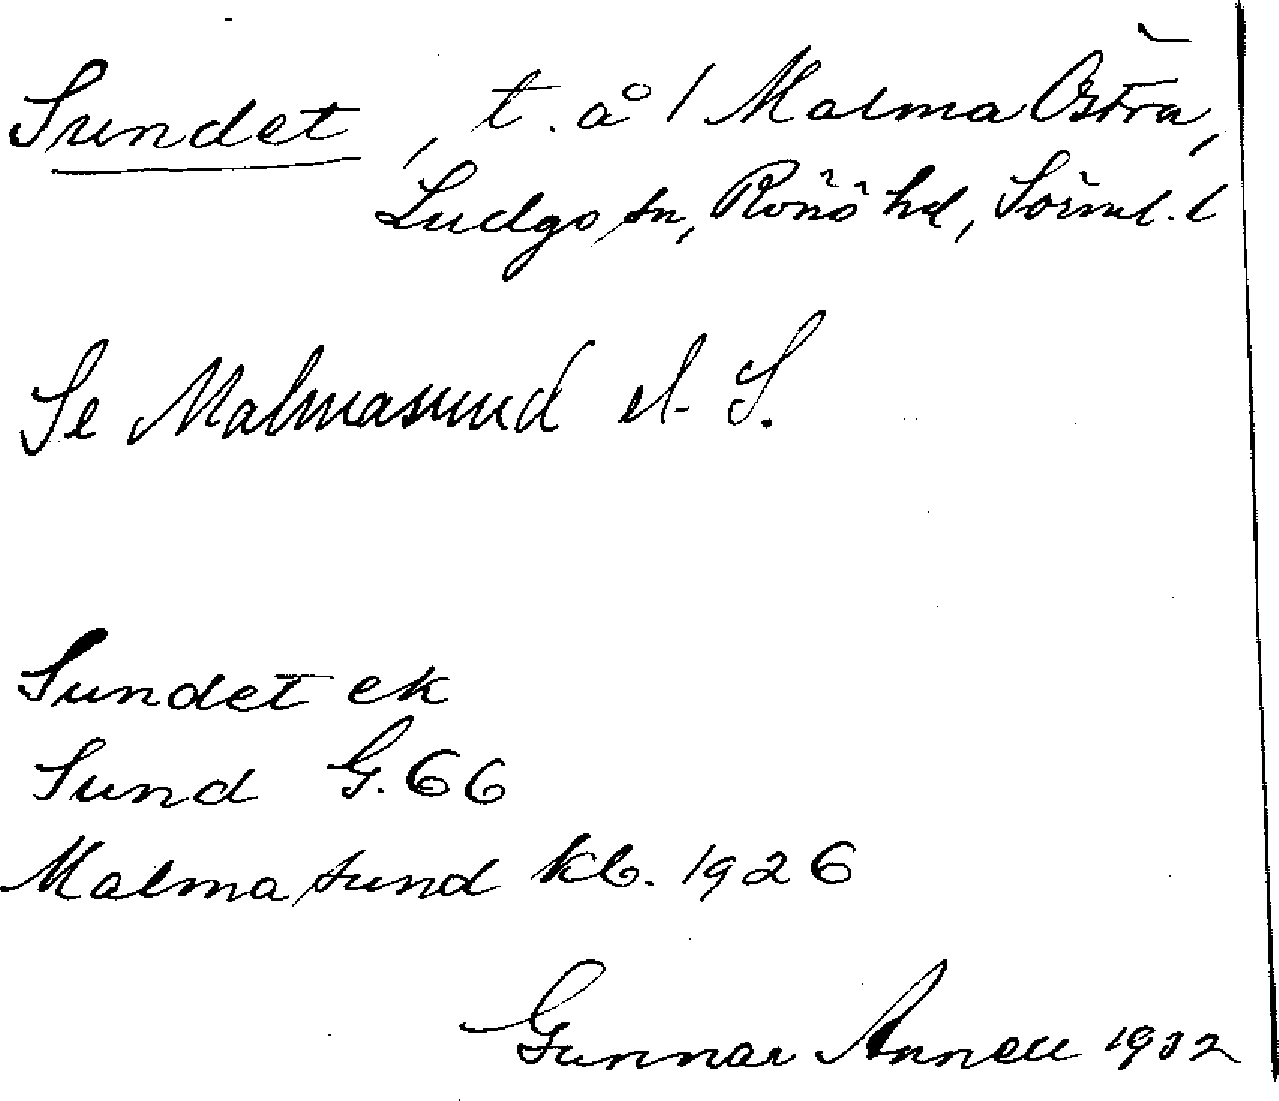 Sundet, t. å / Malma Östra,
Ludgo sn, Rönö hd, Sörml. l
Se Malmasund el. S.
Sundet ek
Sund G. 66
Malmasund kb. 1926
Gunnar Annell 1932